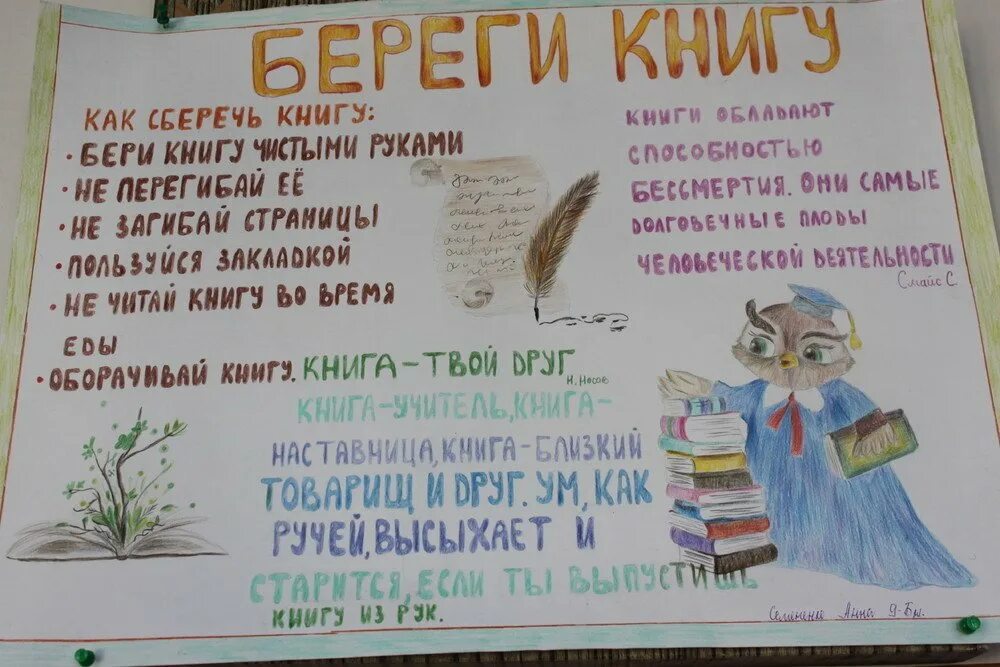 БЕРЕГИ КНИГУ
КАК СБЕРЕЧЬ КНИГУ:
• БЕРИ КНИГУ ЧИСТЫМИ РУКАМИ
• НЕ ПЕРЕГИБАЙ ЕЁ
• НЕ ЗАГИБАЙ СТРАНИЦЫ
• ПОЛЬЗУЙСЯ ЗАКЛАДКОЙ
• НЕ ЧИТАЙ КНИГУ ВО ВРЕМЯ
ЕДЫ
• ОБОРАЧИВАЙ КНИГУ.
КНИГИ ОБЛАДАЮТ
СПОСОБНОСТЬЮ
БЕССМЕРТИЯ. ОНИ САМЫЕ
ДОЛГОВЕЧНЫЕ ПЛОДЫ
ЧЕЛОВЕЧЕСКОЙ ДЕЯТЕЛЬНОСТИ
Смайс С.
КНИГА-ТВОЙ ДРУГ
Н. Носов
КНИГА-УЧИТЕЛЬ, КНИГА-
НАСТАВНИЦА, КНИГА-БЛИЗКИЙ
ТОВАРИЩ И ДРУГ. УМ, КАК
РУЧЕЙ, ВЫСЫХАЕТ И
СТАРИТСЯ, ЕСЛИ ТЫ ВЫПУСТИШЬ
КНИГУ ИЗ РУК.
Анна 9-Бн.